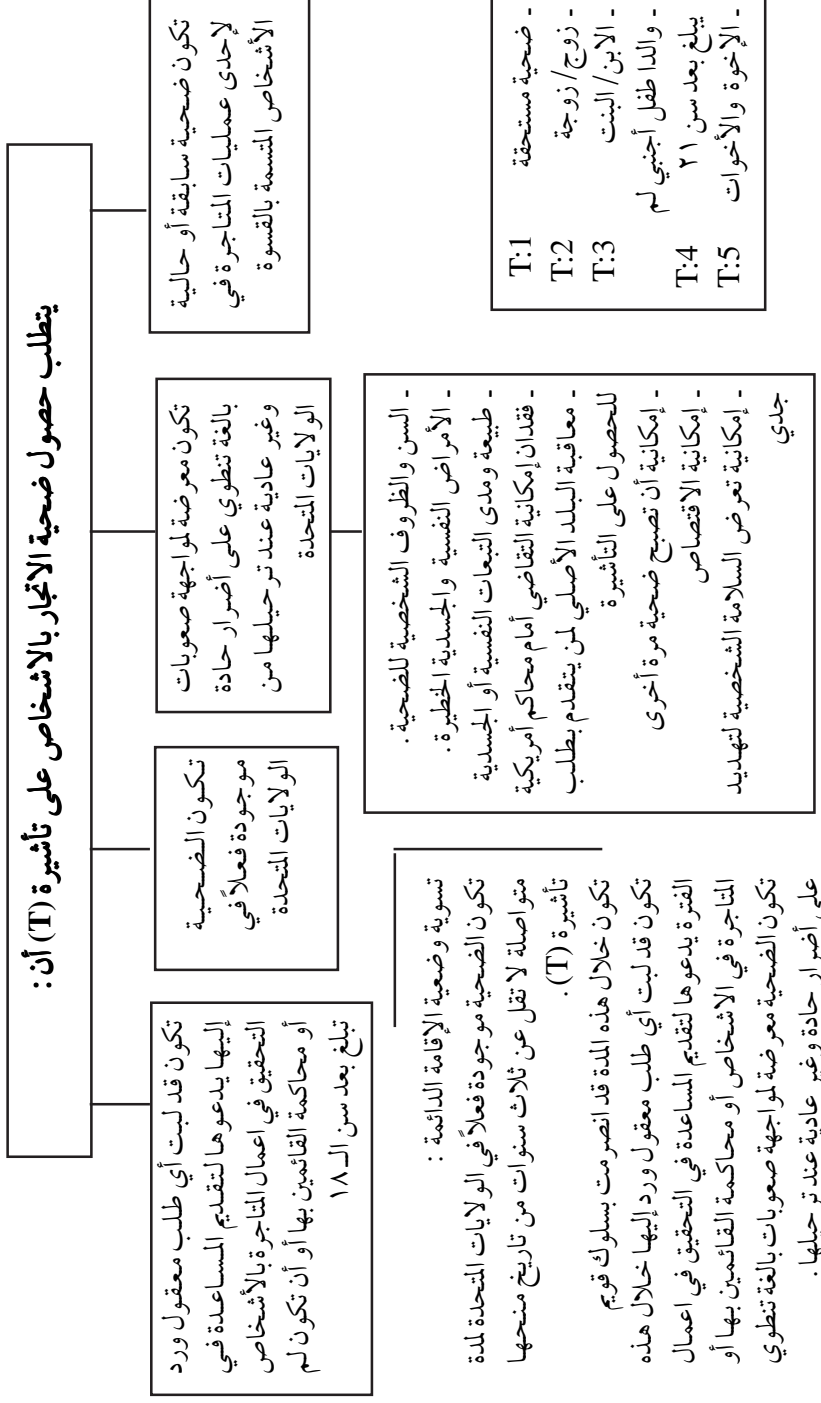 يتطلب حصول ضحية الاتجار بالاشخاص على تأشيرة (T) أن :
تكون ضحية سابقة أو حالية
لإحدى عمليات المتاجرة في
الأشخاص المتسمة بالقسوة
تكون معرضة لمواجهة صعوبات
بالغة تنطوي على أضرار حادة
وغير عادية عند ترحيلها من
الولايات المتحدة
تكون الضحية
موجودة فعلاً في
الولايات المتحدة
تكون قد لبت أي طلب معقول ورد
إليها يدعوها لتقديم المساعدة في
التحقيق في اعمال المتاجرة بالأشخاص
أو محاكمة القائمين بها أو أن تكون لم
تبلغ بعد سن الـ ١٨
T:1 - ضحية مستحقة
T:2 - زوج/ زوجة
T:3 - الابن/ البنت
- والدا طفل أجنبي لم
T:4 يبلغ بعد سن ٢١
T:5 - الإخوة والأخوات
- السن والظروف الشخصية للضحية .
- الأمراض النفسية والجسدية الخطيرة .
- طبيعة ومدى التبعات النفسية أو الجسدية
- فقدان إمكانية التقاضي أمام محاكم أمريكية
- معاقبة البلد الأصلي لمن يتقدم بطلب
للحصول على التأشيرة
- إمكانية أن تصبح ضحية مرة أخرى
- إمكانية الاقتصاص
- إمكانية تعرض السلامة الشخصية لتهديد
جدي
تسوية وضعية الإقامة الدائمة :
تكون الضحية موجودة فعلاً في الولايات المتحدة لمدة
متواصلة لا تقل عن ثلاث سنوات من تاريخ منحها
تأشيرة (T) .
تكون خلال هذه المدة قد انصرمت بسلوك قويم
تكون قد لبت أي طلب معقول ورد إليها خلال هذه
الفترة يدعوها لتقديم المساعدة في التحقيق في اعمال
المتاجرة في الاشخاص أو محاكمة القائمين بها أو
تكون الضحية معرضة لمواجهة صعوبات بالغة تنطوي
على أضرار حادة وغير عادية عند ترحيلها .